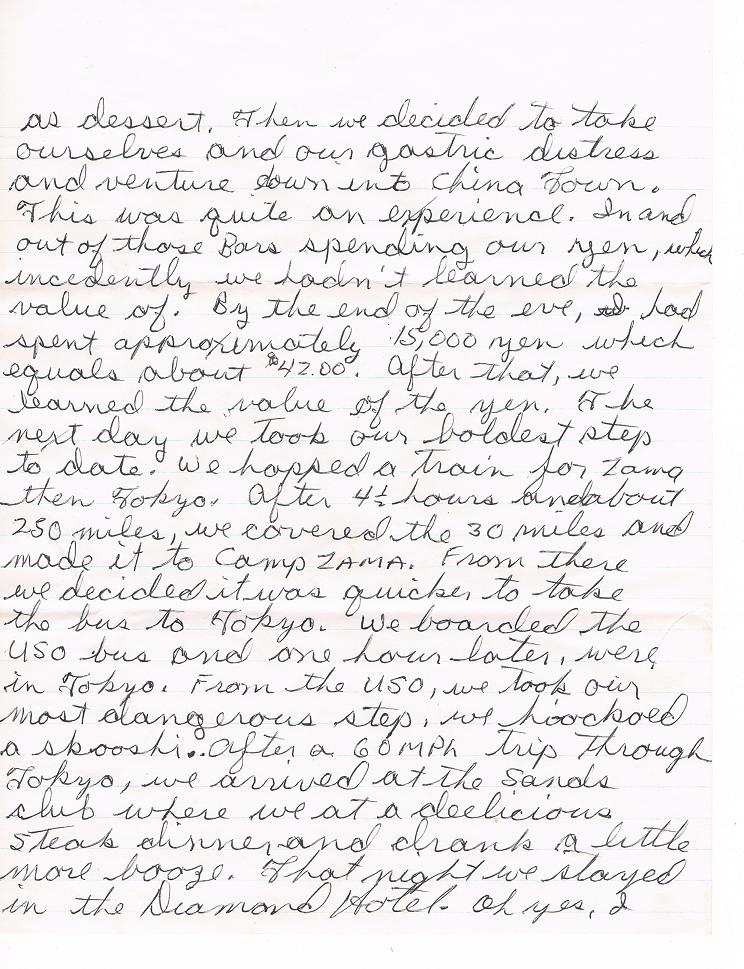 as dessert. Then we decided to take
ourselves and our gastric distress
and venture down into China Town.
This was quite an experience. In and
out of those Bars spending our yen, which
incedently we hadn't learned the
value of. By the end of the eve, had
spent approximately 15,000 yen which
equals about $42.00. After that, we
learned the value of the yen. The
next day we took our boldest step
to date. We hopped a train for Zama
then Tokyo. After 4½ hours and about
250 miles, we covered the 30 miles and
made it to Camp ZAMA. From there
we decided it was quicker to take
the bus to Tokyo. We boarded the
USO bus and one hour later, were
in Tokyo. From the USO, we took our
most dangerous step, we
a skooshi.. After a 60 MPh trip through
Tokyo, we arrived at the Sands
club where we at a deelicious
steak dinner and drank a little
more booze. That night we stayed
in the Diamond Hotel. Oh yes, I